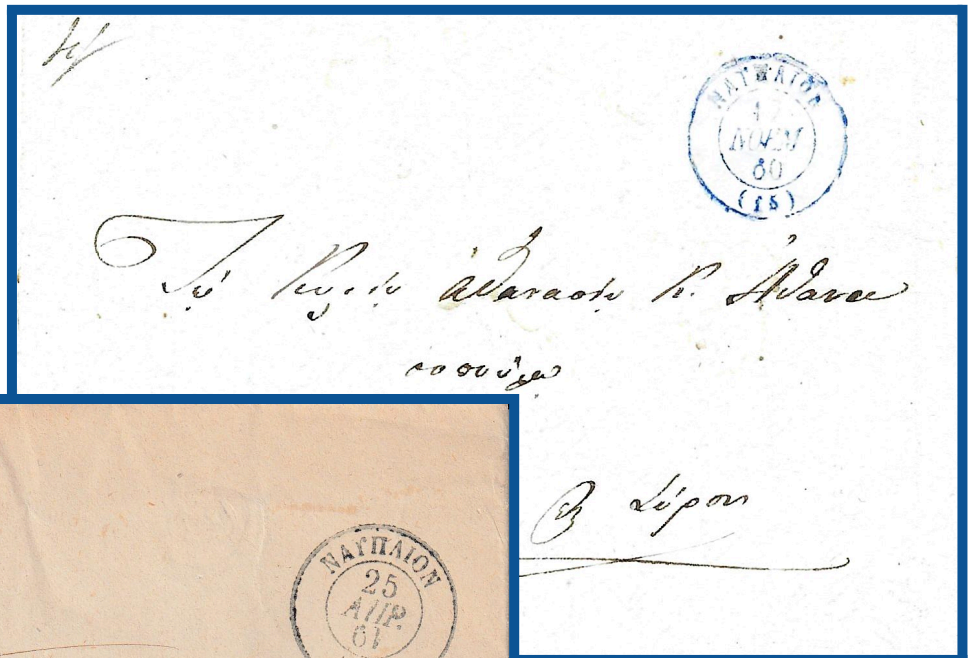 ΝΑΥΠΛΙΟΝ
17
ΝΟΕΜ
60
(15)
Τῷ Κυρίῳ Ἀθανασίῳ Κ. Ἀθανα
σοπούλῳ
Σύρον
ΝΑΥΠΛΙΟΝ
25
ΑΠΡ.
61